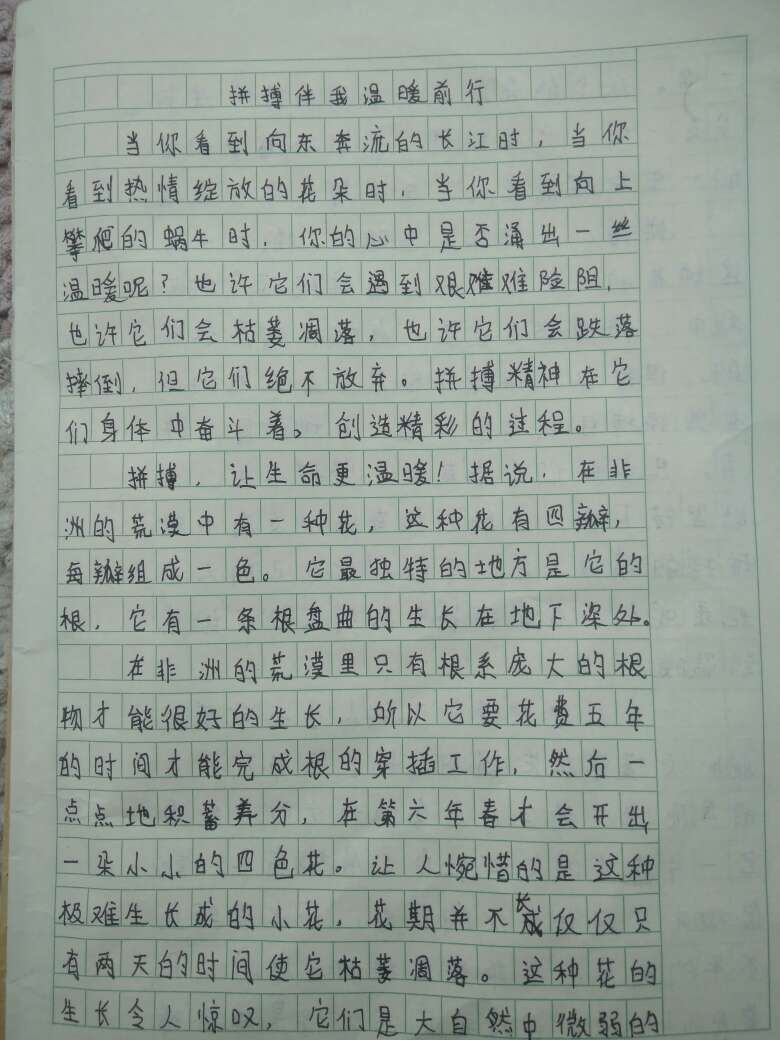 拼搏伴我温暖前行
当你看到向东奔流的长江时，当你
看到热情绽放的花朵时，当你看到向上
攀爬的蜗牛时，你的心中是否涌出一丝
温暖呢？也许它们会遇到艰难难险阻，
也许它们会枯萎凋落，也许它们会跌落
摔倒，但它们绝不放弃。拼搏精神在它
们身体中奋斗着。创造精彩的过程。
拼搏，让生命更温暖！据说，在非
洲的荒漠中有一种花，这种花有四瓣，
每瓣组成一色。它最独特的地方是它的
根，它有一条根盘曲的生长在地下深处。
在非洲的荒漠里只有根系庞大的根
物才能很好的生长，所以它要花费五年
的时间才能完成根的穿插工作，然后一
点点地积蓄养分，在第六年春才会开出
一朵小小的四色花。让人惋惜的是这种
极难生长成的小花，花期并不长仅仅只
有两天的时间使它枯萎凋落。这种花的
生长令人惊叹，它们是大自然中微弱的